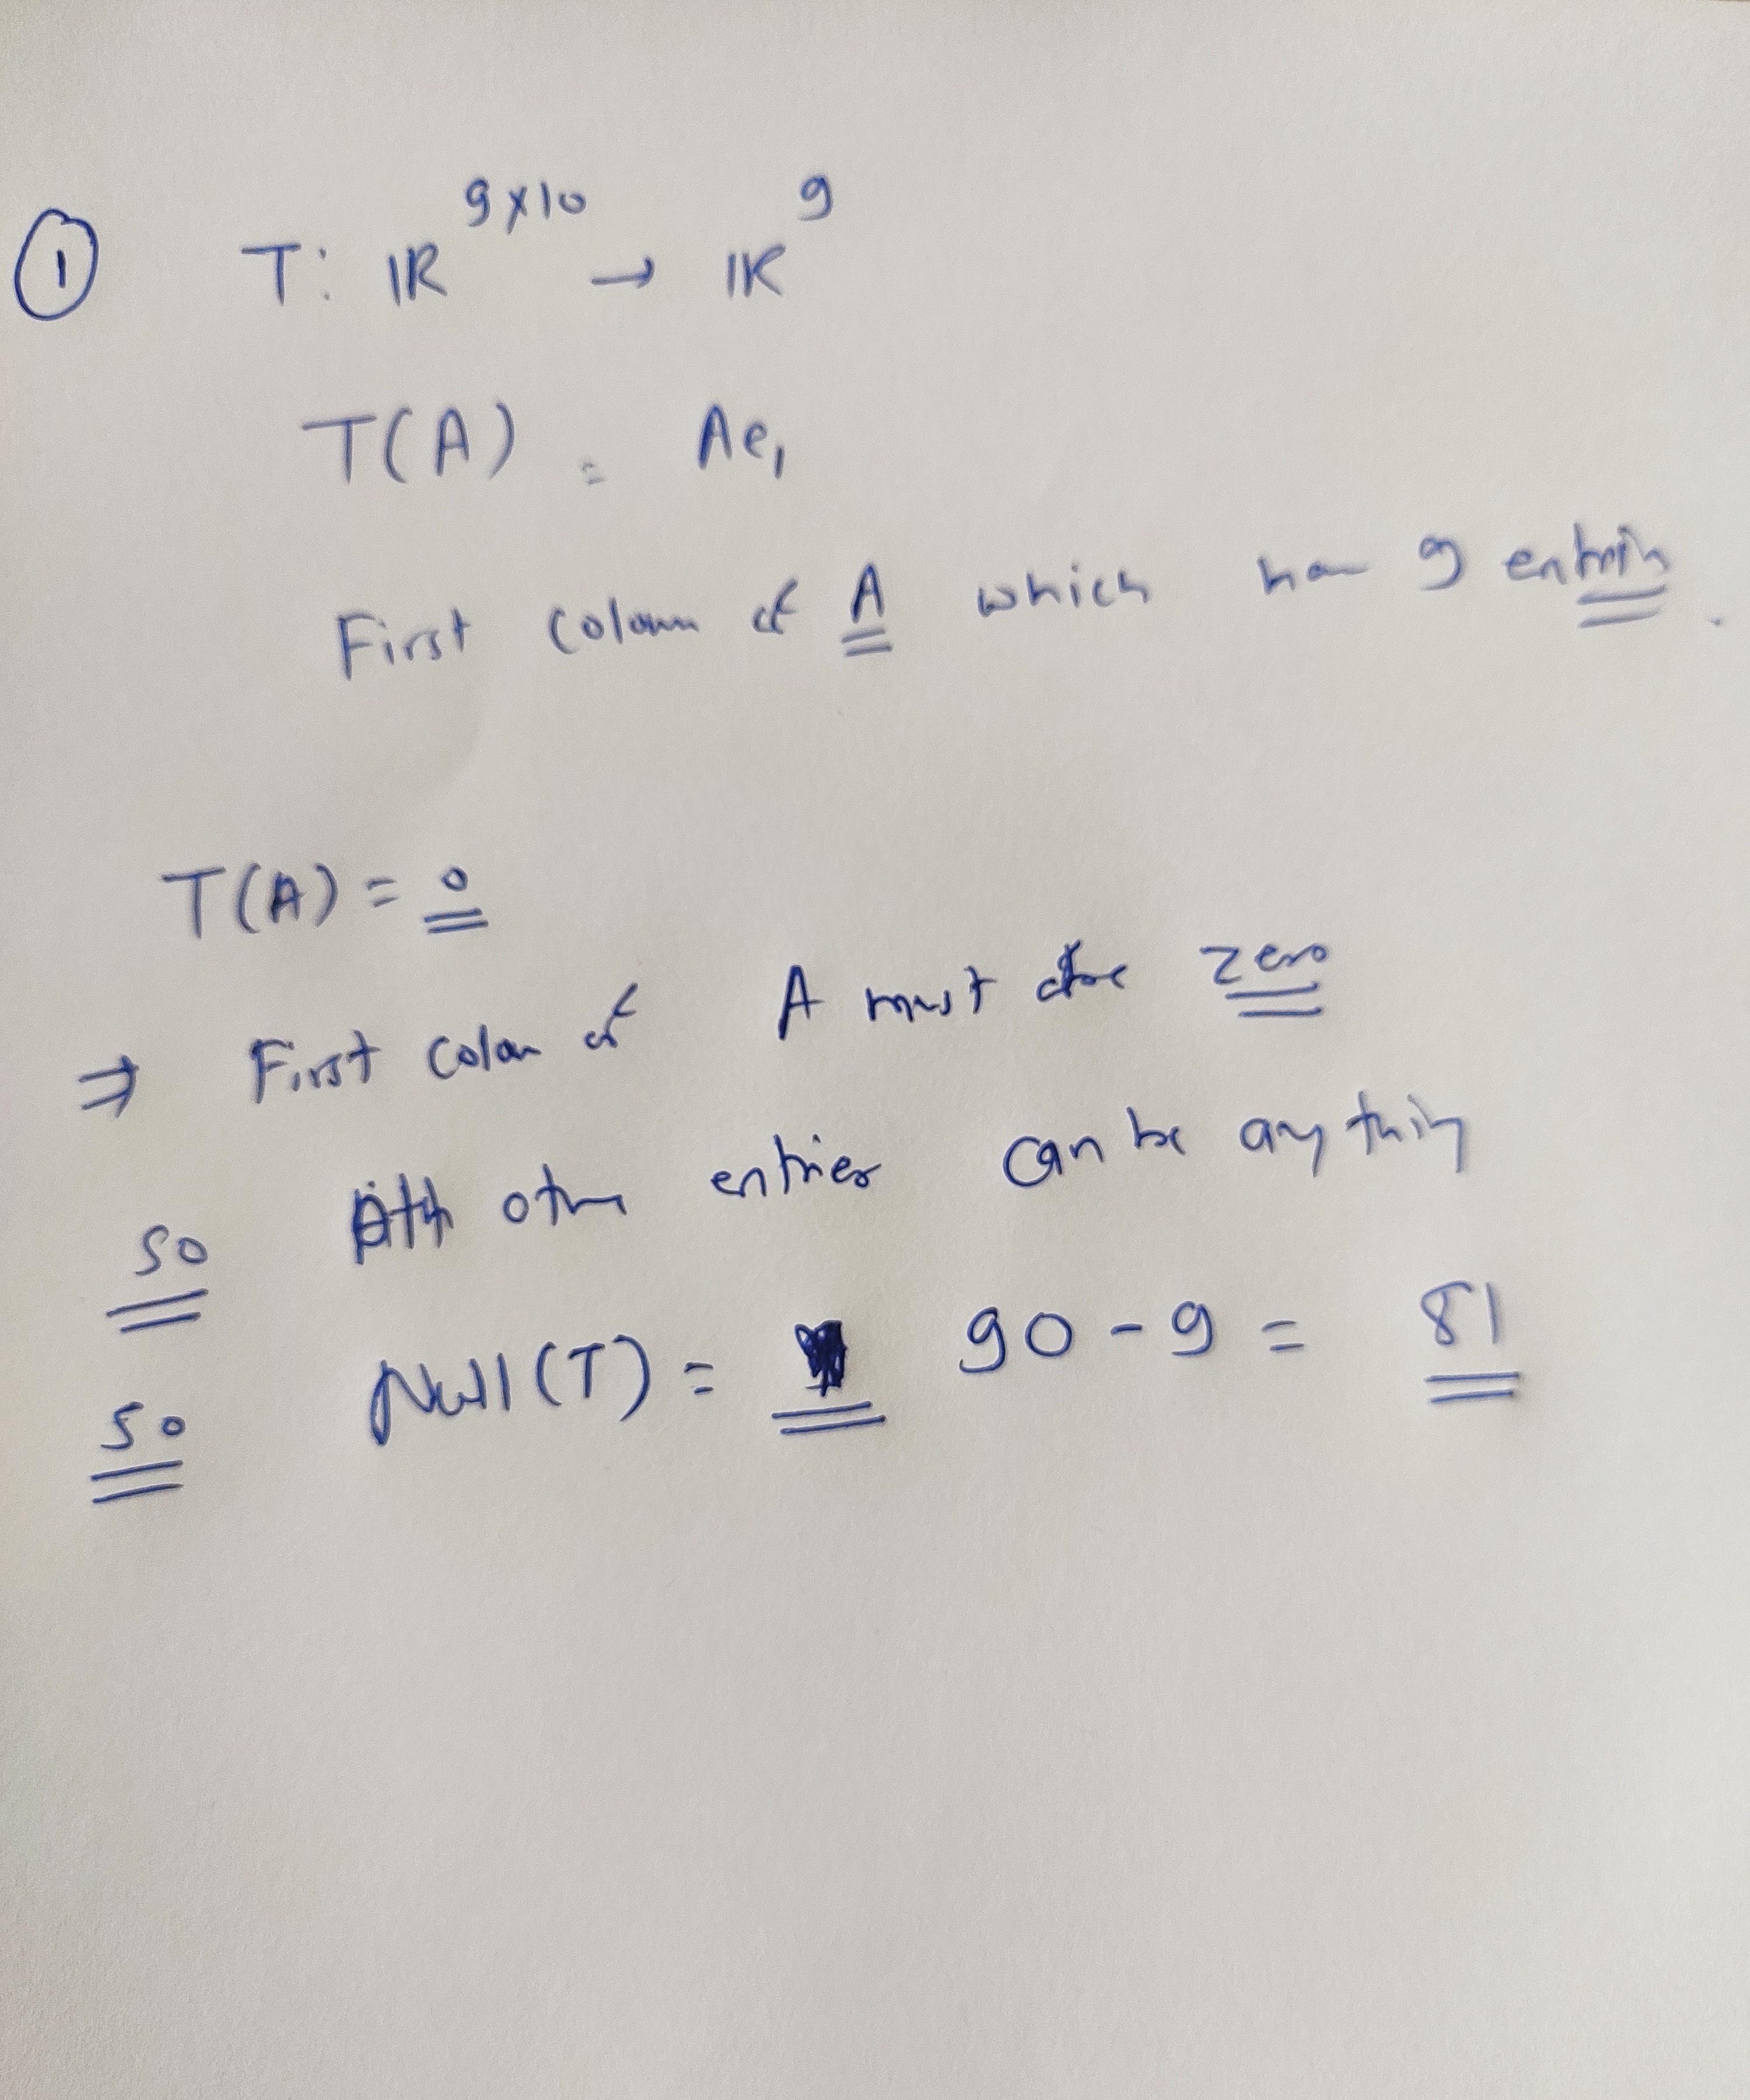 ① T: ℝ^{9×10} → ℝ^9
T(A) = Ae₁
First colomn of A which have 9 entries.
T(A) = 0
⇒ First colomn of A must be zero
so other entries can be anything
so Null(T) = 90 - 9 = 81